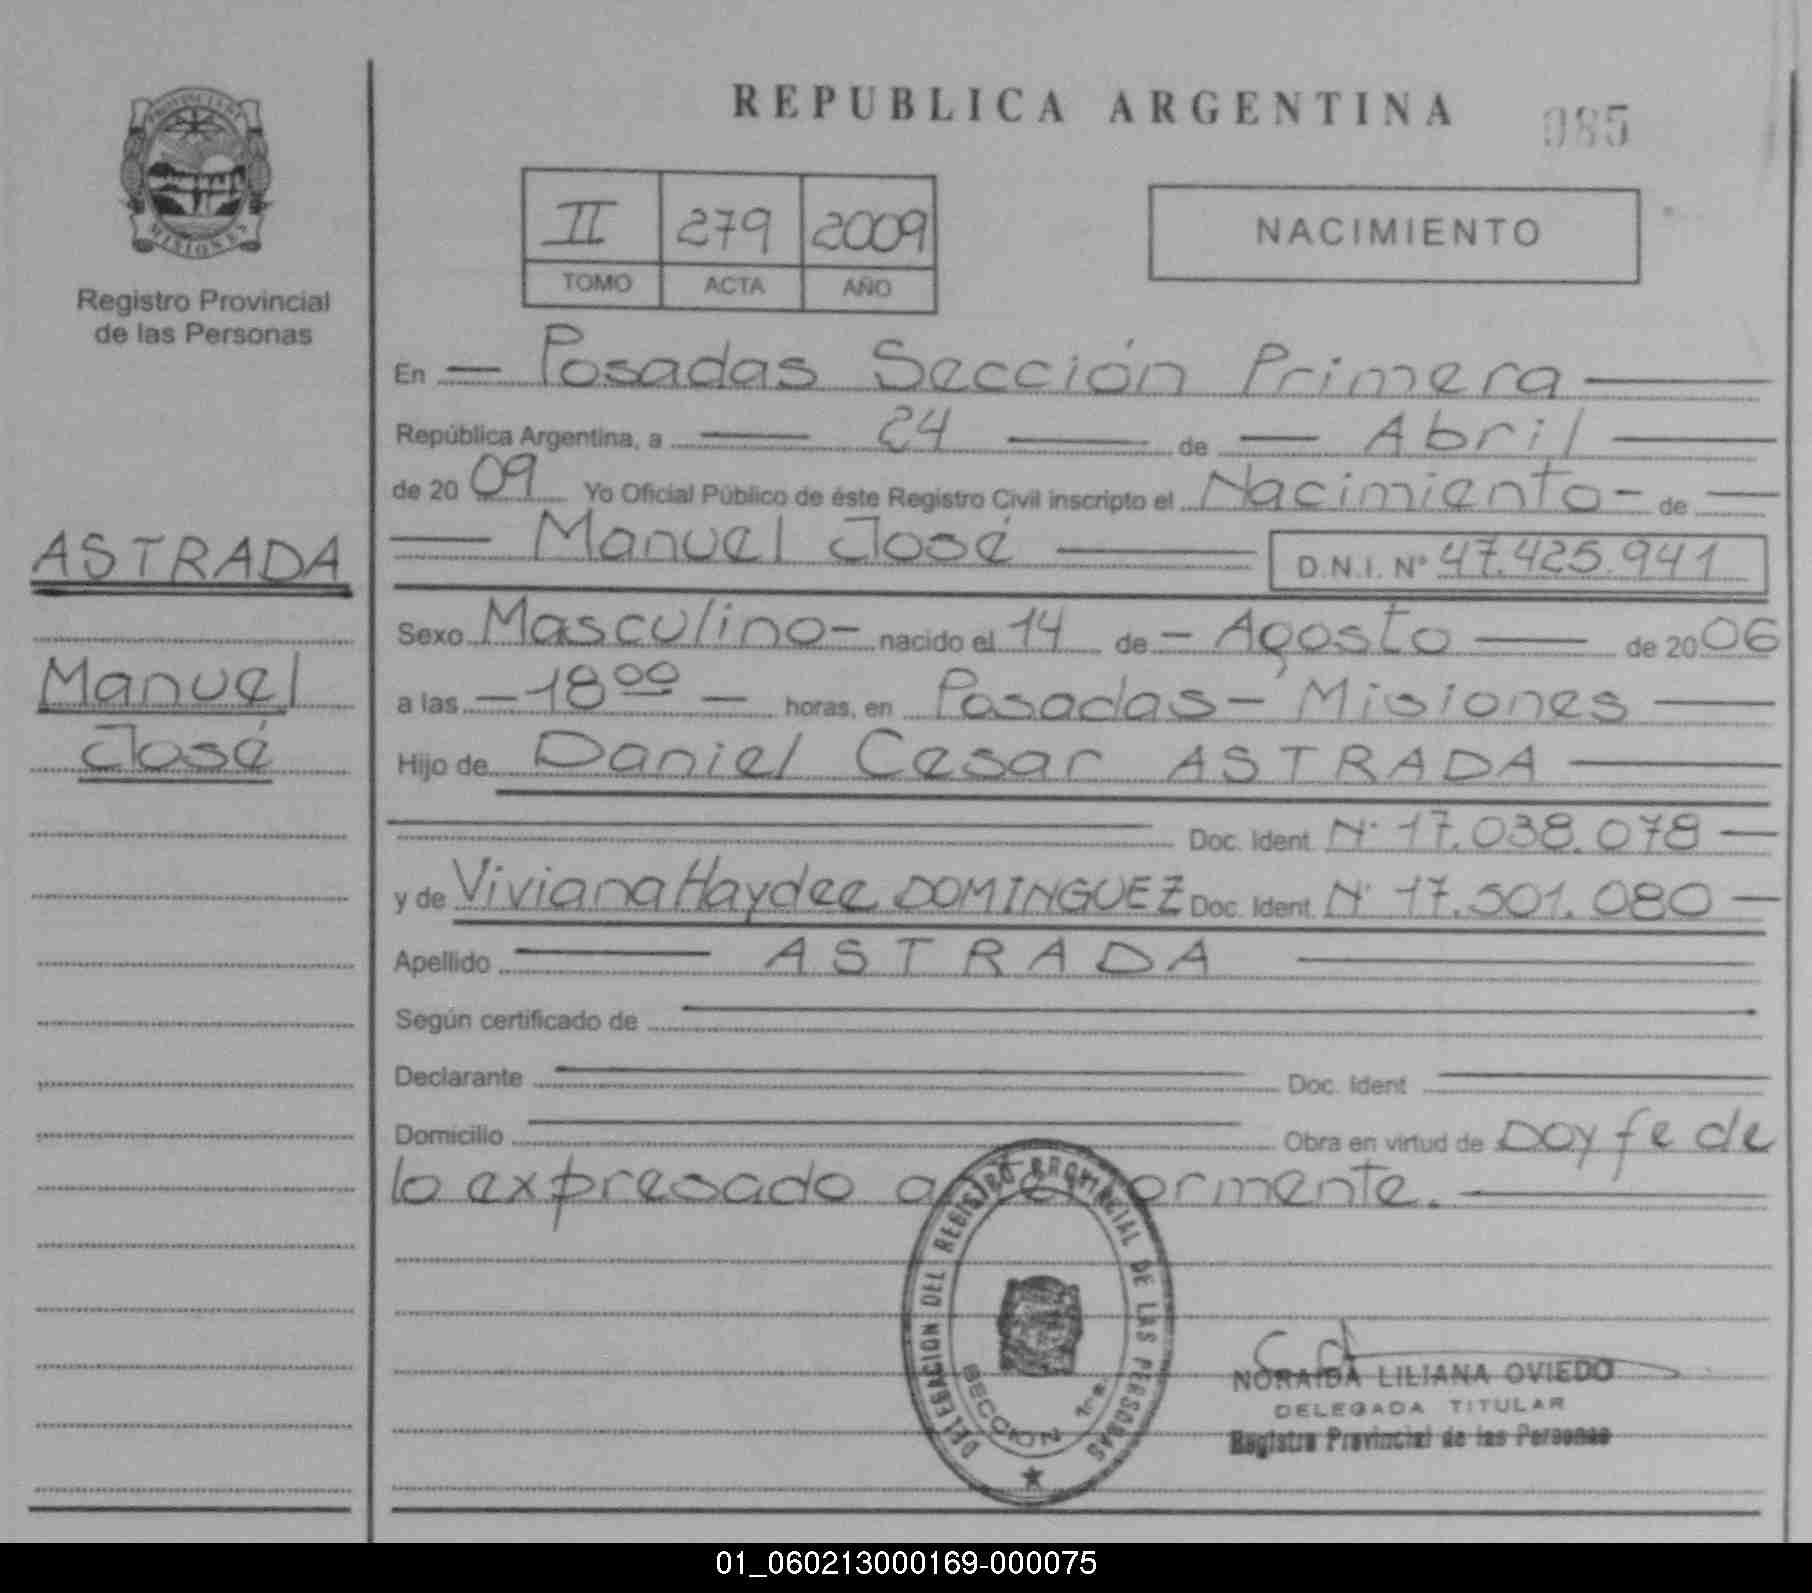 REPUBLICA ARGENTINA
085
PROVINCIA DE
MISIONES
Registro Provincial
de las Personas
II 279 2009
TOMO ACTA AÑO
NACIMIENTO
En Posadas Sección Primera
República Argentina, a 24 de Abril
de 2009 Yo Oficial Público de éste Registro Civil inscripto el Nacimiento de
ASTRADA
Manuel José
D.N.I. Nº 47.425.941
Sexo Masculino nacido el 14 de Agosto de 2006
Manuel
José
a las 18 00 horas, en Posadas - Misiones
Hijo de Daniel Cesar ASTRADA
Doc. Ident Nº 17.038.078
y de Viviana Haydee DOMINGUEZ Doc. Ident Nº 17.501.080
Apellido ASTRADA
Según certificado de
Declarante Doc. Ident
Domicilio Obra en virtud de Doy fe de
lo expresado anteriormente.
DELEGACION DEL REGISTRO PROVINCIAL DE LAS PERSONAS
SECCION 1ra.
NORAIDA LILIANA OVIEDO
DELEGADA TITULAR
Registro Provincial de las Personas
01_060213000169-000075